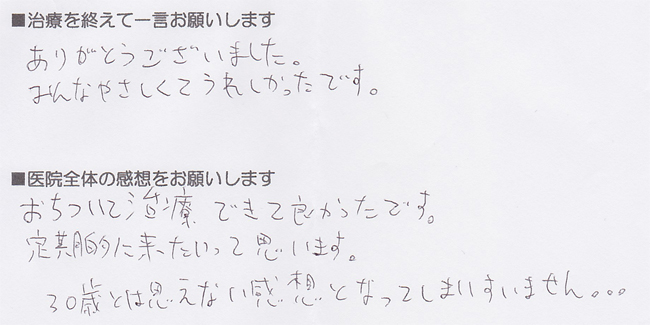 ■治療を終えて一言お願いします
ありがとうございました。
みんなやさしくてうれしかったです。
■医院全体の感想をお願いします
おちついて治療できて良かったです。
定期的に来たいって思います。
30歳とは思えない感想となってしまいすいません...